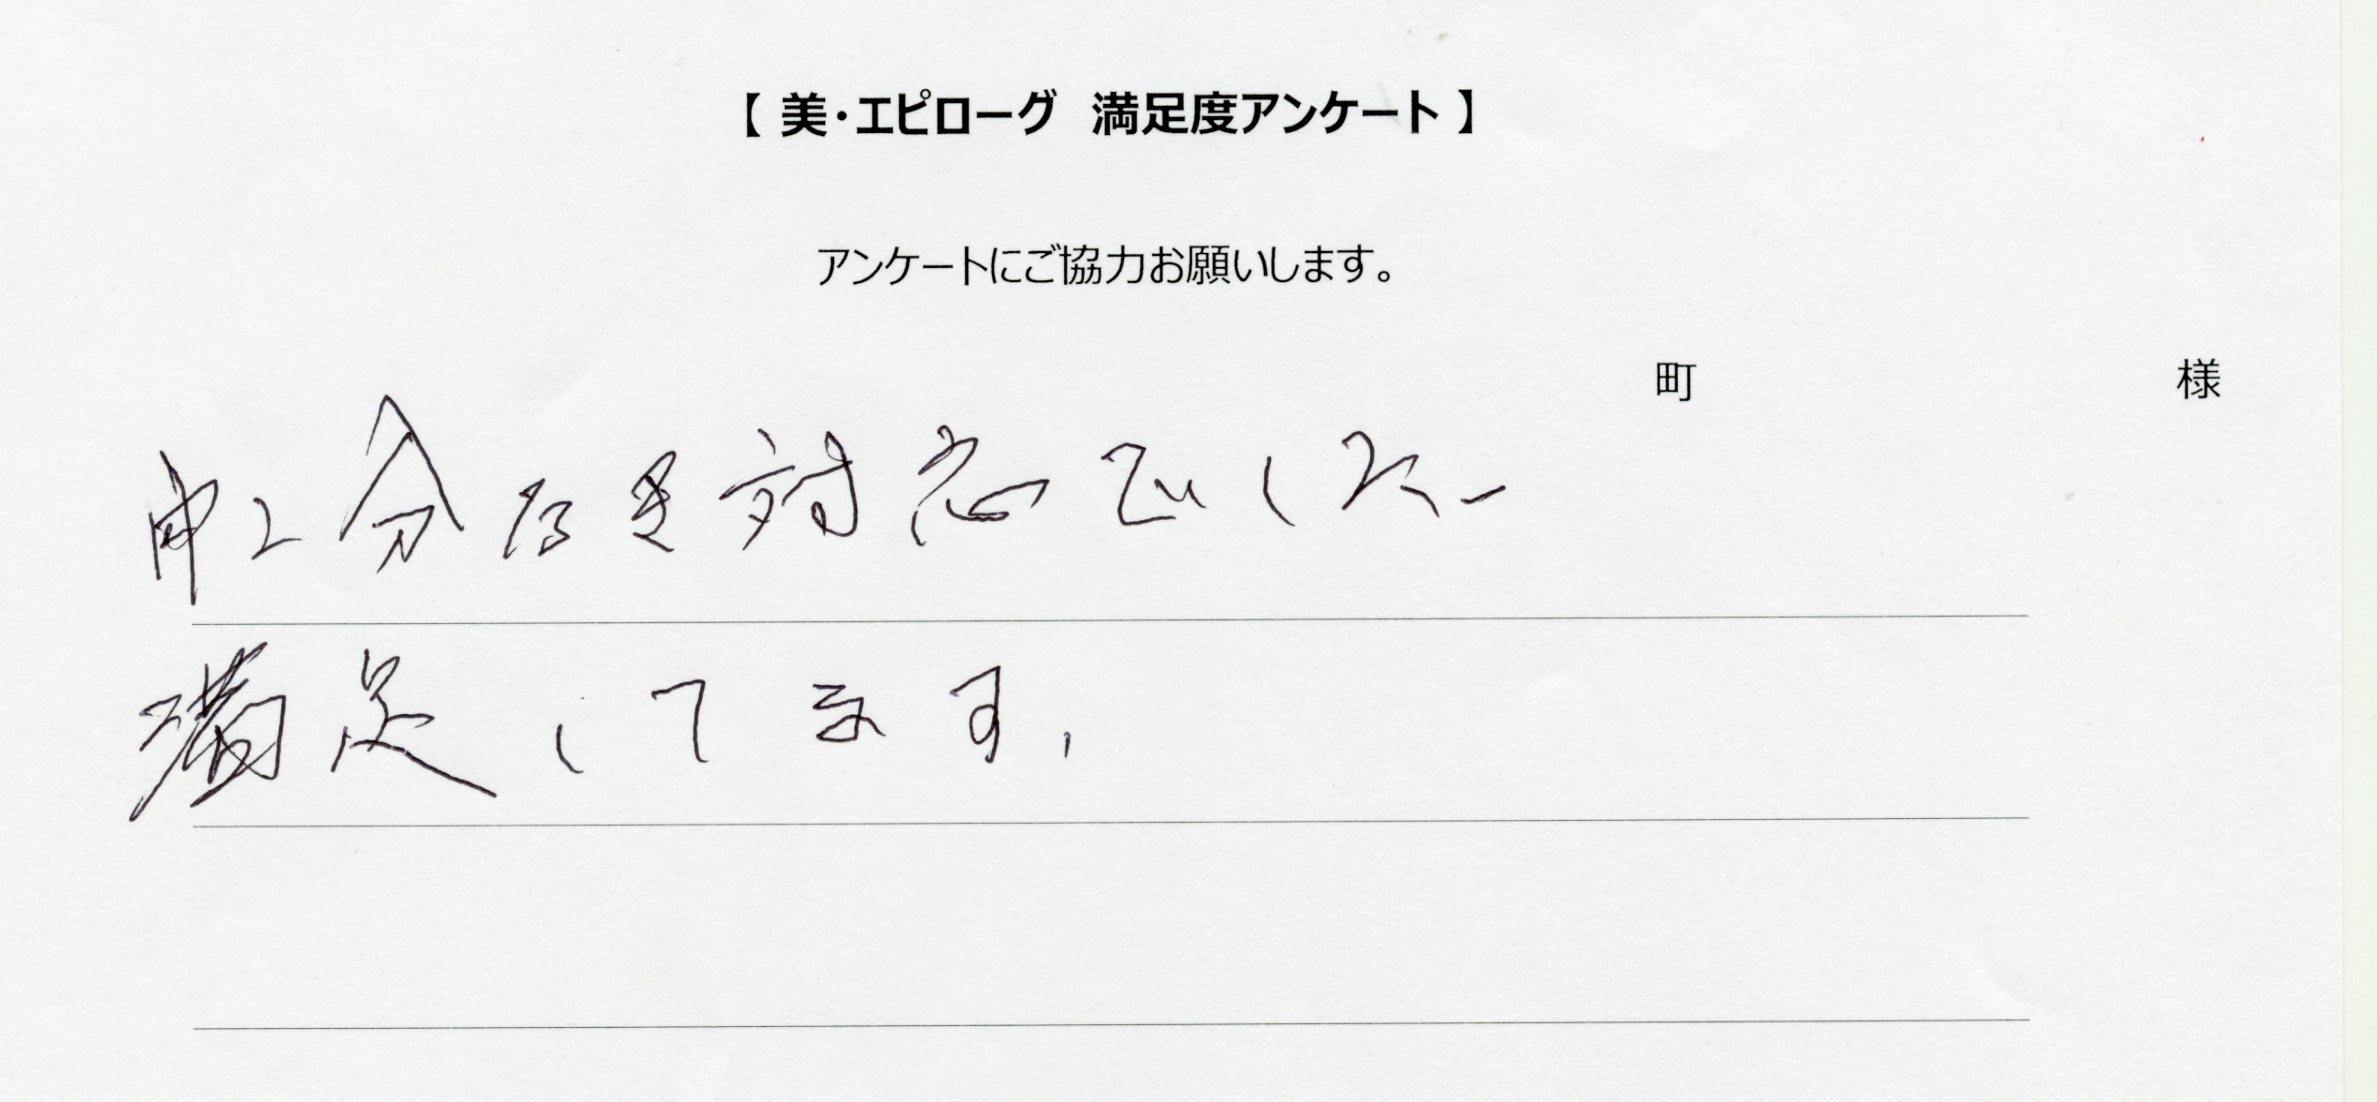 【 美・エピローグ 満足度アンケート 】
アンケートにご協力お願いします。
町 様
申し分なき対応でした
満足してます、